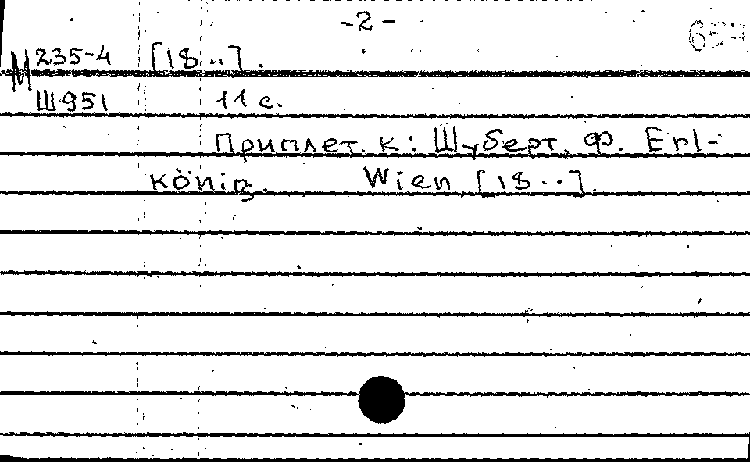 -2-
М 235-4 [18..].
Ш951 11 с.
Приплет. к: Шуберт, Ф. Erl-
könig. Wien, [18..].